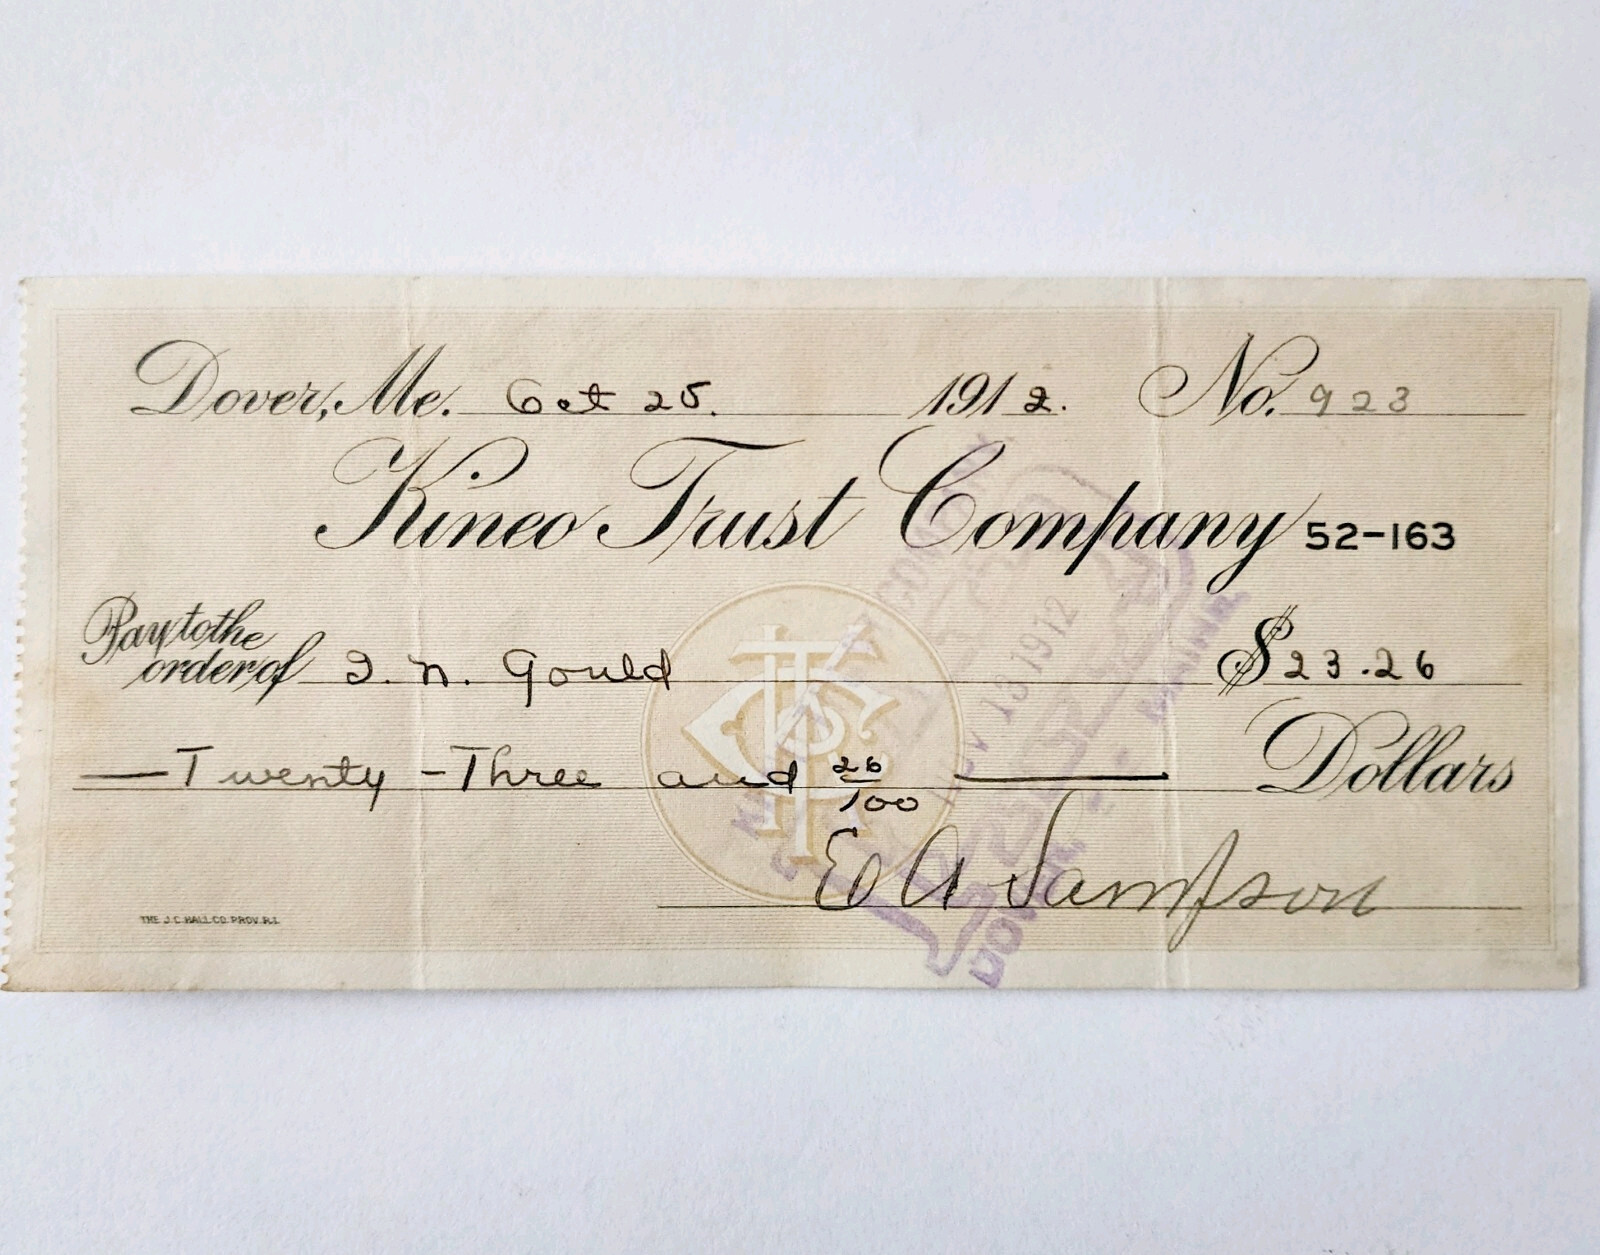 Dover, Me. Oct 25. 1912. No. 923
Kineo Trust Company 52-163
Pay to the
order of I. N. Gould $23.26
Twenty-Three and 26/100 Dollars
E A Sampson
THE J.C. HALL CO. PROV. R.I.
NOV 13 1912
DOVER, MAINE.